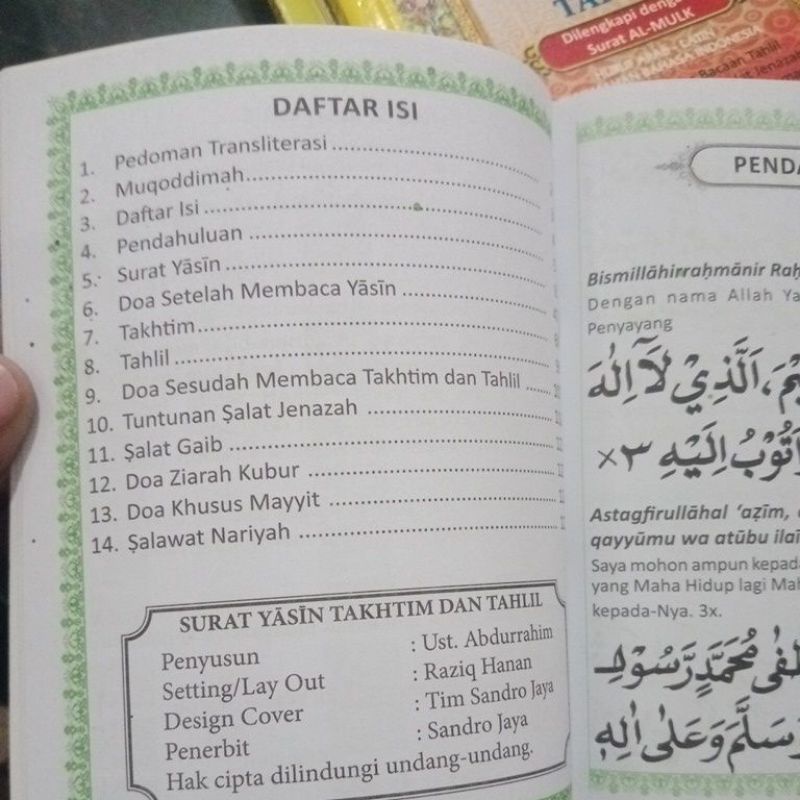 Dilengkapi dengan
Surat AL-MULK
HURUF ARAB - LATIN
BAHASA INDONESIA
Bacaan Tahlil
DAFTAR ISI
1. Pedoman Transliterasi
2. Muqoddimah
3. Daftar Isi
4. Pendahuluan
5. Surat Yāsīn
6. Doa Setelah Membaca Yāsīn
7. Takhtim
8. Tahlil
9. Doa Sesudah Membaca Takhtim dan Tahlil
10. Tuntunan Ṣalat Jenazah
11. Ṣalat Gaib
12. Doa Ziarah Kubur
13. Doa Khusus Mayyit
14. Ṣalawat Nariyah
SURAT YĀSĪN TAKHTIM DAN TAHLIL
Penyusun : Ust. Abdurrahim
Setting/Lay Out : Raziq Hanan
Design Cover : Tim Sandro Jaya
Penerbit : Sandro Jaya
Hak cipta dilindungi undang-undang.
PENDA
Bismillāhirraḥmānir Raḥ
Dengan nama Allah Ya
Penyayang
اَلَّذِيْ لَآ اِلٰهَ
اَتُوْبُ اِلَيْهِ ×٣
Astagfirullāhal ‘aẓīm,
qayyūmu wa atūbu ilai
Saya mohon ampun kepada
yang Maha Hidup lagi Mah
kepada-Nya. 3x.
مُحَمَّدٍ رَّسُوْلِ
وَسَلَّمَ وَعَلٰى اٰلِهِ